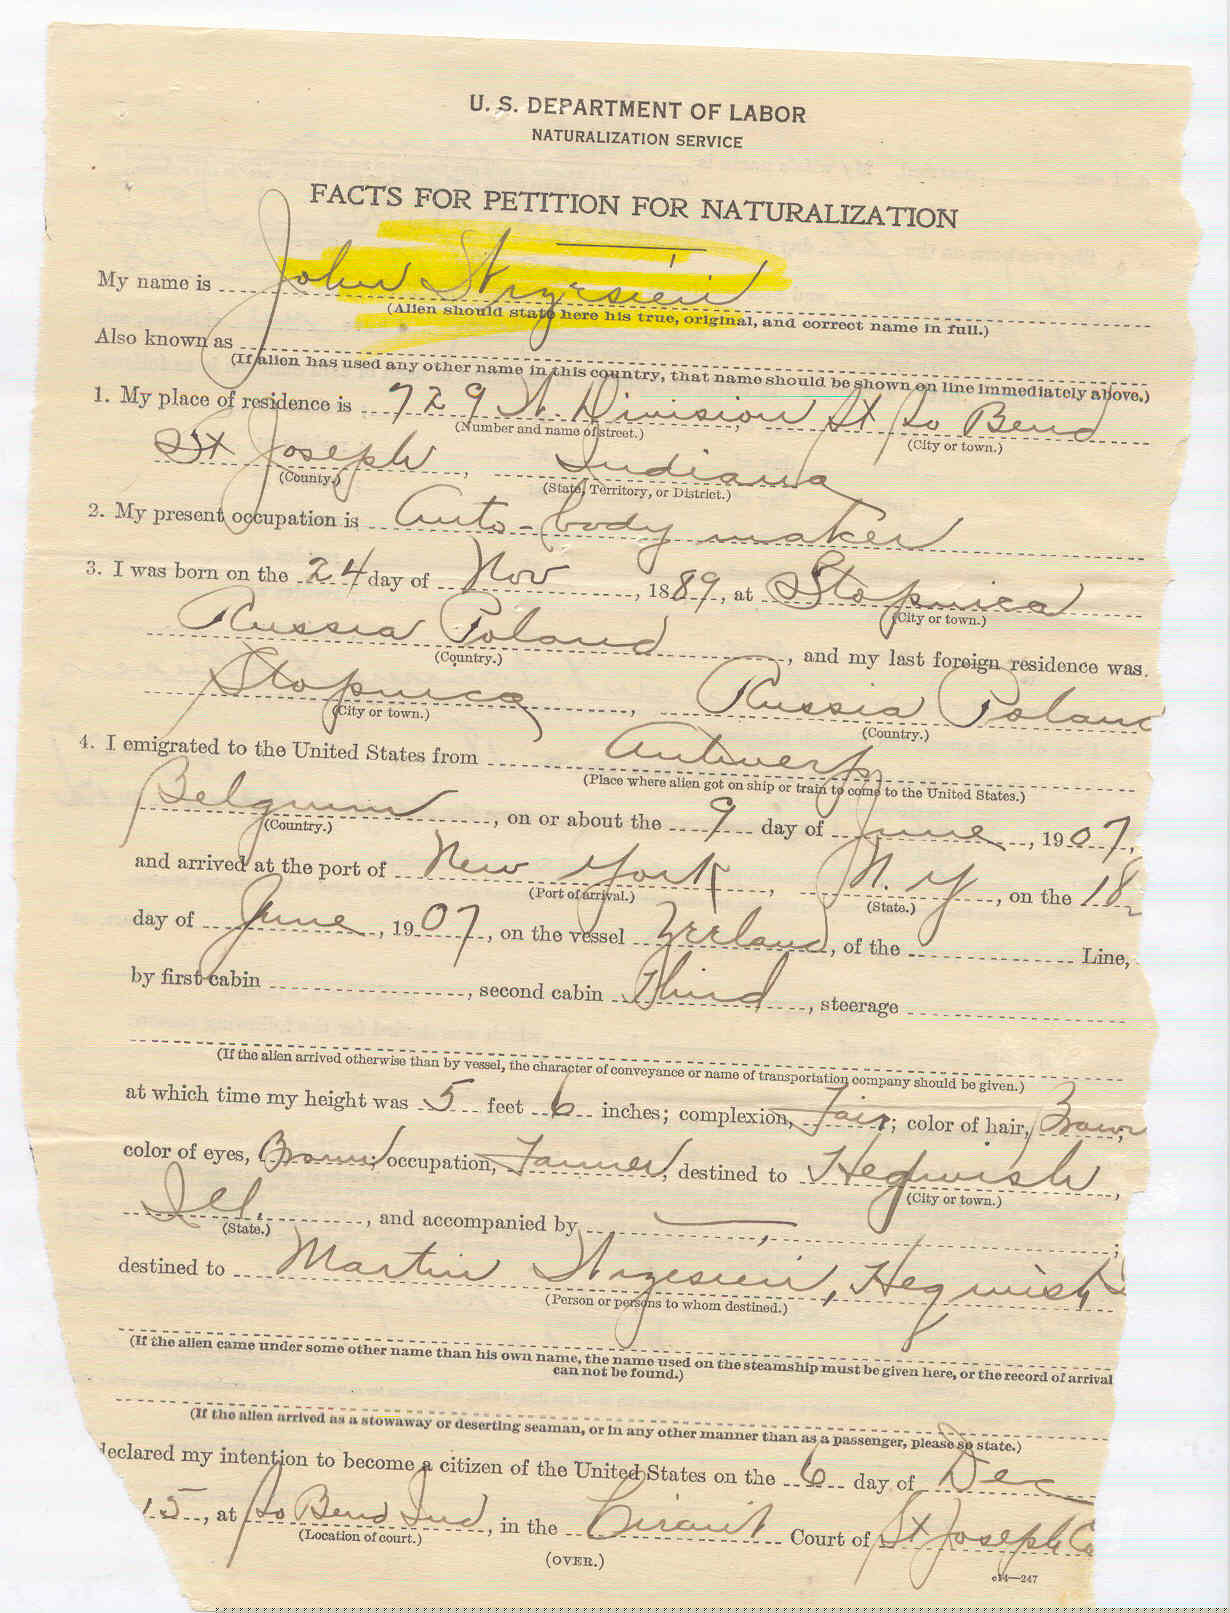 U. S. DEPARTMENT OF LABOR
NATURALIZATION SERVICE
FACTS FOR PETITION FOR NATURALIZATION
My name is John
(Alien should state here his true, original, and correct name in full.)
Also known as
(If alien has used any other name in this country, that name should be shown on line immediately above.)
1. My place of residence is 729 W. Division St So Bend
(Number and name of street.) (City or town.)
St Joseph, Indiana
(County.) (State, Territory, or District.)
2. My present occupation is Auto-body maker
3. I was born on the 24 day of Nov, 1889, at Stopnica
(City or town.)
Russia Poland, and my last foreign residence was
(Country.)
Stopnica, Russia Poland
(City or town.) (Country.)
4. I emigrated to the United States from Antwerp
(Place where alien got on ship or train to come to the United States.)
Belgium, on or about the 9 day of June, 1907,
(Country.)
and arrived at the port of New York, N. Y, on the 18
(Port of arrival.) (State.)
day of June, 1907, on the vessel, of the Line,
by first cabin, second cabin Third, steerage
(If the alien arrived otherwise than by vessel, the character of conveyance or name of transportation company should be given.)
at which time my height was 5 feet 6 inches; complexion, Fair; color of hair, Brown;
color of eyes, Brown; occupation, Farmer, destined to Hegwish,
(City or town.)
Ill., and accompanied by;
(State.)
destined to Martin, Hegwish
(Person or persons to whom destined.)
(If the alien came under some other name than his own name, the name used on the steamship must be given here, or the record of arrival
can not be found.)
(If the alien arrived as a stowaway or deserting seaman, or in any other manner than as a passenger, please so state.)
declared my intention to become a citizen of the United States on the 6 day of Dec
15, at So Bend Ind, in the Circuit Court of St Joseph Co
(Location of court.)
(OVER.)
c14—247